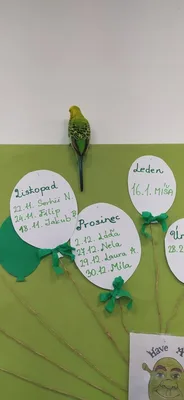 Listopad
22.11. Sofie N.
24.11. Filip
18.11. Jakub B.
Prosinec
2.12. Lóďa
27.12. Nela
29.12. Laura A.
30.12. Mila
Leden
16.1. MÍŠA
Have